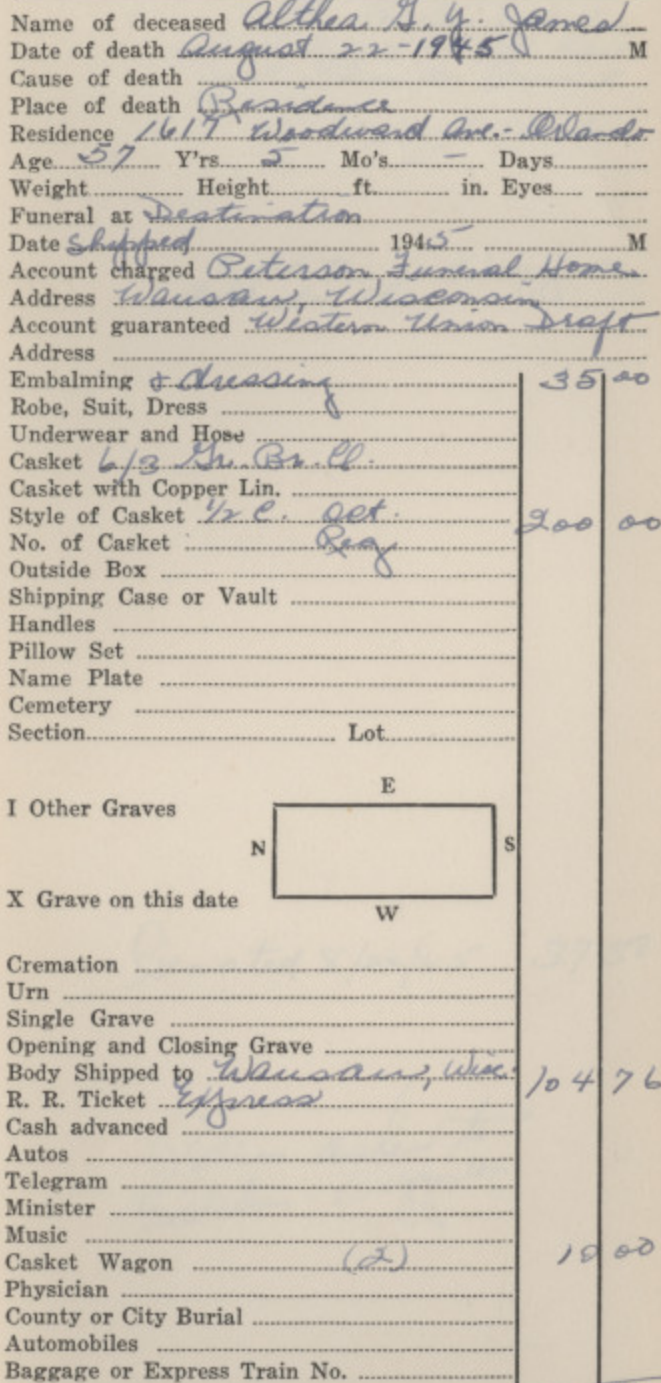 Name of deceased Althea G. Y. James
Date of death August 22-1945 M
Cause of death
Place of death Residence
Residence 1617 Woodward Ave.- Orlando
Age 57 Y'rs. 5 Mo's. — Days
Weight Height ft. in. Eyes
Funeral at Destination
Date Shipped 1945 M
Account charged Peterson Funeral Home
Address Wausau, Wisconsin
Account guaranteed Western Union Draft
Address
Embalming & dressing 35 00
Robe, Suit, Dress
Underwear and Hose
Casket 6/3 Gr. Br. Cl.
Casket with Copper Lin.
Style of Casket 1/2 C. Oct. 200 00
No. of Casket Reg
Outside Box
Shipping Case or Vault
Handles
Pillow Set
Name Plate
Cemetery
Section Lot
E
I Other Graves
N S
X Grave on this date
W
Cremation
Urn
Single Grave
Opening and Closing Grave
Body Shipped to Wausau, Wisc. 104 76
R. R. Ticket Express
Cash advanced
Autos
Telegram
Minister
Music
Casket Wagon (2) 10 00
Physician
County or City Burial
Automobiles
Baggage or Express Train No.